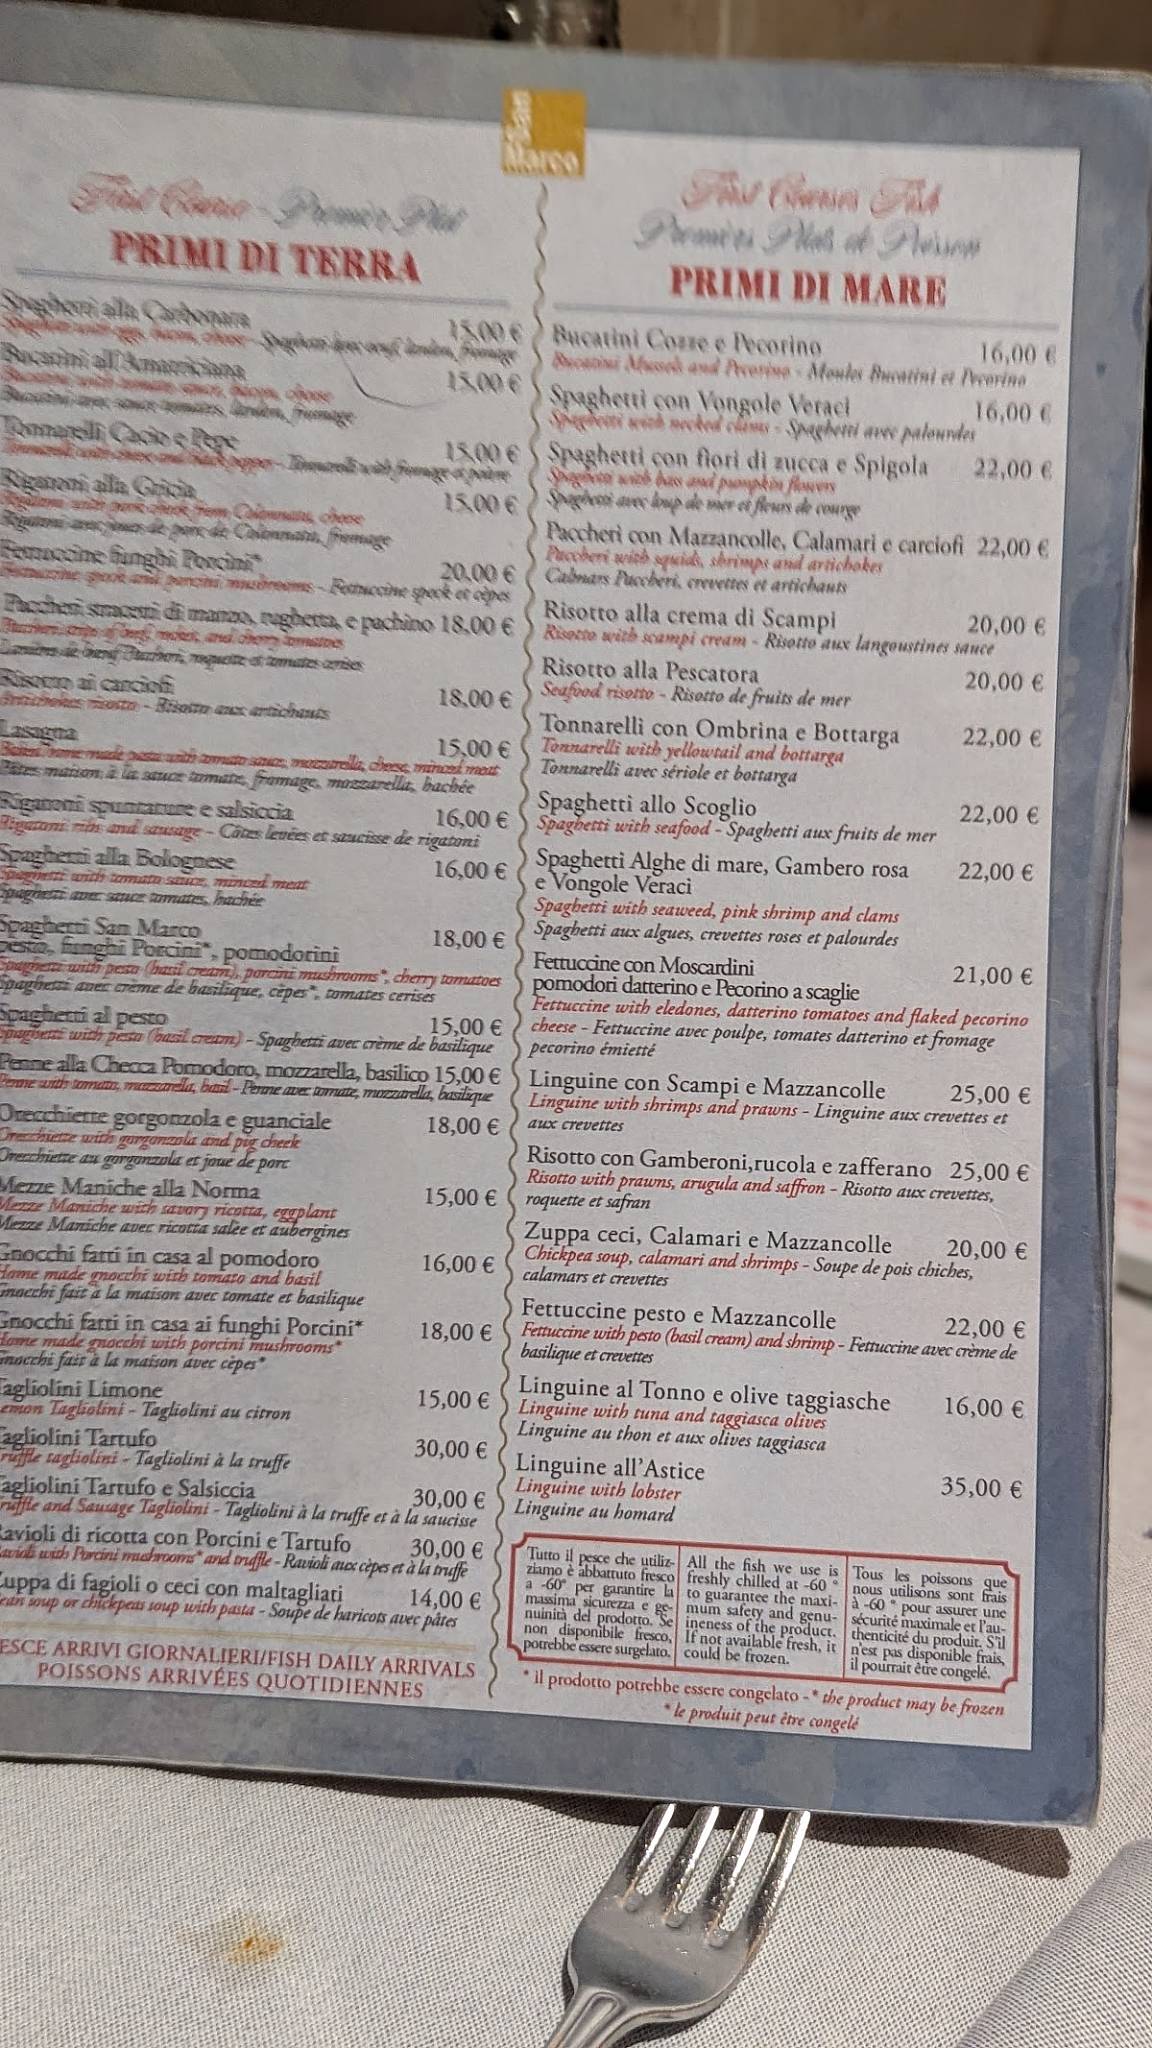 San
Marco
First Course - Premier Plat
PRIMI DI TERRA
Spaghetti alla Carbonara 15,00 €
Bucatini all'Amatriciana 15,00 €
Tonnarelli Cacio e Pepe 15,00 €
Rigatoni alla Gricia 15,00 €
Fettuccine funghi Porcini* 20,00 €
Fettuccine speck and porcini mushrooms - Fettuccine speck et cèpes
Paccheri straccetti di manzo, rughetta, e pachino 18,00 €
Risotto ai carciofi 18,00 €
Artichokes risotto - Risotto aux artichauts
Lasagna 15,00 €
Baked home made pasta with tomato sauce, mozzarella, cheese, minced meat
Pâtes maison à la sauce tomate, fromage, mozzarella, hachée
Rigatoni spuntature e salsiccia 16,00 €
Rigatoni ribs and sausage - Côtes levées et saucisse de rigatoni
Spaghetti alla Bolognese 16,00 €
Spaghetti with tomato sauce, minced meat
Spaghetti avec sauce tomates, hachée
Spaghetti San Marco 18,00 €
pesto, funghi Porcini*, pomodorini
Spaghetti with pesto (basil cream), porcini mushrooms*, cherry tomatoes
Spaghetti avec crème de basilique, cèpes*, tomates cerises
Spaghetti al pesto 15,00 €
Spaghetti with pesto (basil cream) - Spaghetti avec crème de basilique
Penne alla Checca Pomodoro, mozzarella, basilico 15,00 €
Penne with tomato, mozzarella, basil - Penne avec tomate, mozzarella, basilique
Orecchiette gorgonzola e guanciale 18,00 €
Orecchiette with gorgonzola and pig cheek
Orecchiette au gorgonzola et joue de porc
Mezze Maniche alla Norma 15,00 €
Mezze Maniche with savory ricotta, eggplant
Mezze Maniche avec ricotta salée et aubergines
Gnocchi fatti in casa al pomodoro 16,00 €
Home made gnocchi with tomato and basil
Gnocchi fait à la maison avec tomate et basilique
Gnocchi fatti in casa ai funghi Porcini* 18,00 €
Home made gnocchi with porcini mushrooms*
Gnocchi fait à la maison avec cèpes*
Tagliolini Limone 15,00 €
Lemon Tagliolini - Tagliolini au citron
Tagliolini Tartufo 30,00 €
Truffle tagliolini - Tagliolini à la truffe
Tagliolini Tartufo e Salsiccia 30,00 €
Truffle and Sausage Tagliolini - Tagliolini à la truffe et à la saucisse
Ravioli di ricotta con Porcini e Tartufo 30,00 €
Ravioli with Porcini mushrooms* and truffle - Ravioli aux cèpes et à la truffe
Zuppa di fagioli o ceci con maltagliati 14,00 €
Bean soup or chickpeas soup with pasta - Soupe de haricots avec pâtes
PESCE ARRIVI GIORNALIERI/FISH DAILY ARRIVALS
POISSONS ARRIVÉES QUOTIDIENNES
First Courses Fish
Premiers Plats de Poisson
PRIMI DI MARE
Bucatini Cozze e Pecorino 16,00 €
Bucatini Mussels and Pecorino - Moules Bucatini et Pecorino
Spaghetti con Vongole Veraci 16,00 €
Spaghetti with necked clams - Spaghetti avec palourdes
Spaghetti con fiori di zucca e Spigola 22,00 €
Spaghetti with bass and pumpkin flowers
Spaghetti avec loup de mer et fleurs de courge
Paccheri con Mazzancolle, Calamari e carciofi 22,00 €
Paccheri with squids, shrimps and artichokes
Calmars Paccheri, crevettes et artichauts
Risotto alla crema di Scampi 20,00 €
Risotto with scampi cream - Risotto aux langoustines sauce
Risotto alla Pescatora 20,00 €
Seafood risotto - Risotto de fruits de mer
Tonnarelli con Ombrina e Bottarga 22,00 €
Tonnarelli with yellowtail and bottarga
Tonnarelli avec sériole et bottarga
Spaghetti allo Scoglio 22,00 €
Spaghetti with seafood - Spaghetti aux fruits de mer
Spaghetti Alghe di mare, Gambero rosa 22,00 €
e Vongole Veraci
Spaghetti with seaweed, pink shrimp and clams
Spaghetti aux algues, crevettes roses et palourdes
Fettuccine con Moscardini 21,00 €
pomodori datterino e Pecorino a scaglie
Fettuccine with eledones, datterino tomatoes and flaked pecorino
cheese - Fettuccine avec poulpe, tomates datterino et fromage
pecorino émietté
Linguine con Scampi e Mazzancolle 25,00 €
Linguine with shrimps and prawns - Linguine aux crevettes et
aux crevettes
Risotto con Gamberoni,rucola e zafferano 25,00 €
Risotto with prawns, arugula and saffron - Risotto aux crevettes,
roquette et safran
Zuppa ceci, Calamari e Mazzancolle 20,00 €
Chickpea soup, calamari and shrimps - Soupe de pois chiches,
calamars et crevettes
Fettuccine pesto e Mazzancolle 22,00 €
Fettuccine with pesto (basil cream) and shrimp - Fettuccine avec crème de
basilique et crevettes
Linguine al Tonno e olive taggiasche 16,00 €
Linguine with tuna and taggiasca olives
Linguine au thon et aux olives taggiasca
Linguine all'Astice 35,00 €
Linguine with lobster
Linguine au homard
Tutto il pesce che utiliz-
ziamo è abbattuto fresco
a -60° per garantire la
massima sicurezza e ge-
nuinità del prodotto. Se
non disponibile fresco,
potrebbe essere surgelato.
All the fish we use is
freshly chilled at -60 °
to guarantee the maxi-
mum safety and genu-
ineness of the product.
If not available fresh, it
could be frozen.
Tous les poissons que
nous utilisons sont frais
à -60 ° pour assurer une
sécurité maximale et l'au-
thenticité du produit. S'il
n'est pas disponible frais,
il pourrait être congelé.
* il prodotto potrebbe essere congelato - * the product may be frozen
* le produit peut être congelé